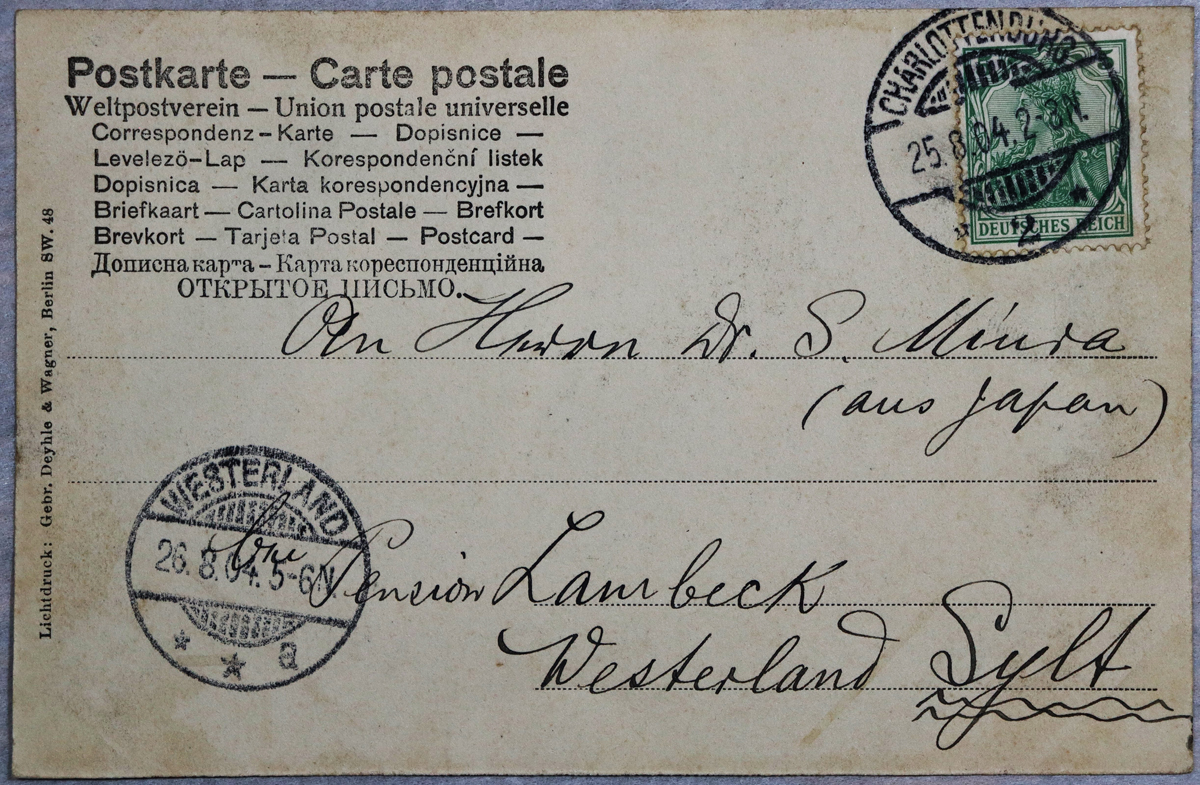 Postkarte — Carte postale
Weltpostverein — Union postale universelle
Correspondenz-Karte — Dopisnice —
Levelezö-Lap — Korespondenční listek
Dopisnica — Karta korespondencyjna —
Briefkaart — Cartolina Postale — Brefkort
Brevkort — Tarjeta Postal — Postcard —
Дописна карта – Карта кореспонденційна
ОТКРЫТОЕ ПИСЬМО.
CHARLOTTENBURG
25.8.04. 2-8N.
* 2 *
DEUTSCHES REICH
An Herrn Dr. S. Miura
(aus Japan)
WESTERLAND
26.8.04. 5-6N
* * a
Pension Lambeck
Westerland Sylt
Lichtdruck: Gebr. Deyhle & Wagner, Berlin SW. 48